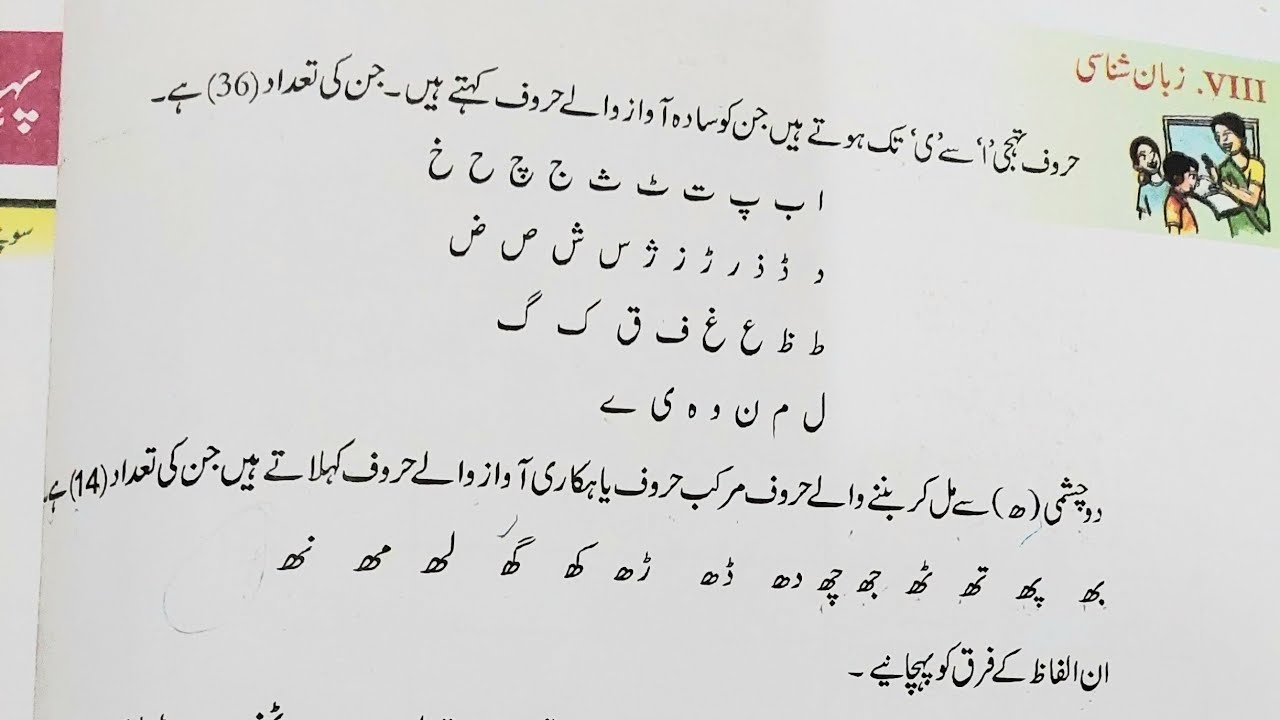 VIII. زبان شناسی
حروف تہجی 'ا' سے 'ی' تک ہوتے ہیں جن کو سادہ آواز والے حروف کہتے ہیں۔ جن کی تعداد (36) ہے۔
ا ب پ ت ٹ ث ج چ ح خ
د ڈ ذ ر ڑ ز ژ س ش ص ض
ط ظ ع غ ف ق ک گ
ل م ن و ہ ی ے
دو چشمی (ھ) سے مل کر بننے والے حروف مرکب حروف یا ہکاری آواز والے حروف کہلاتے ہیں جن کی تعداد (14) ہے۔
بھ پھ تھ ٹھ جھ چھ دھ ڈھ ڑھ کھ گھ لھ مھ نھ
ان الفاظ کے فرق کو پہچانیے۔